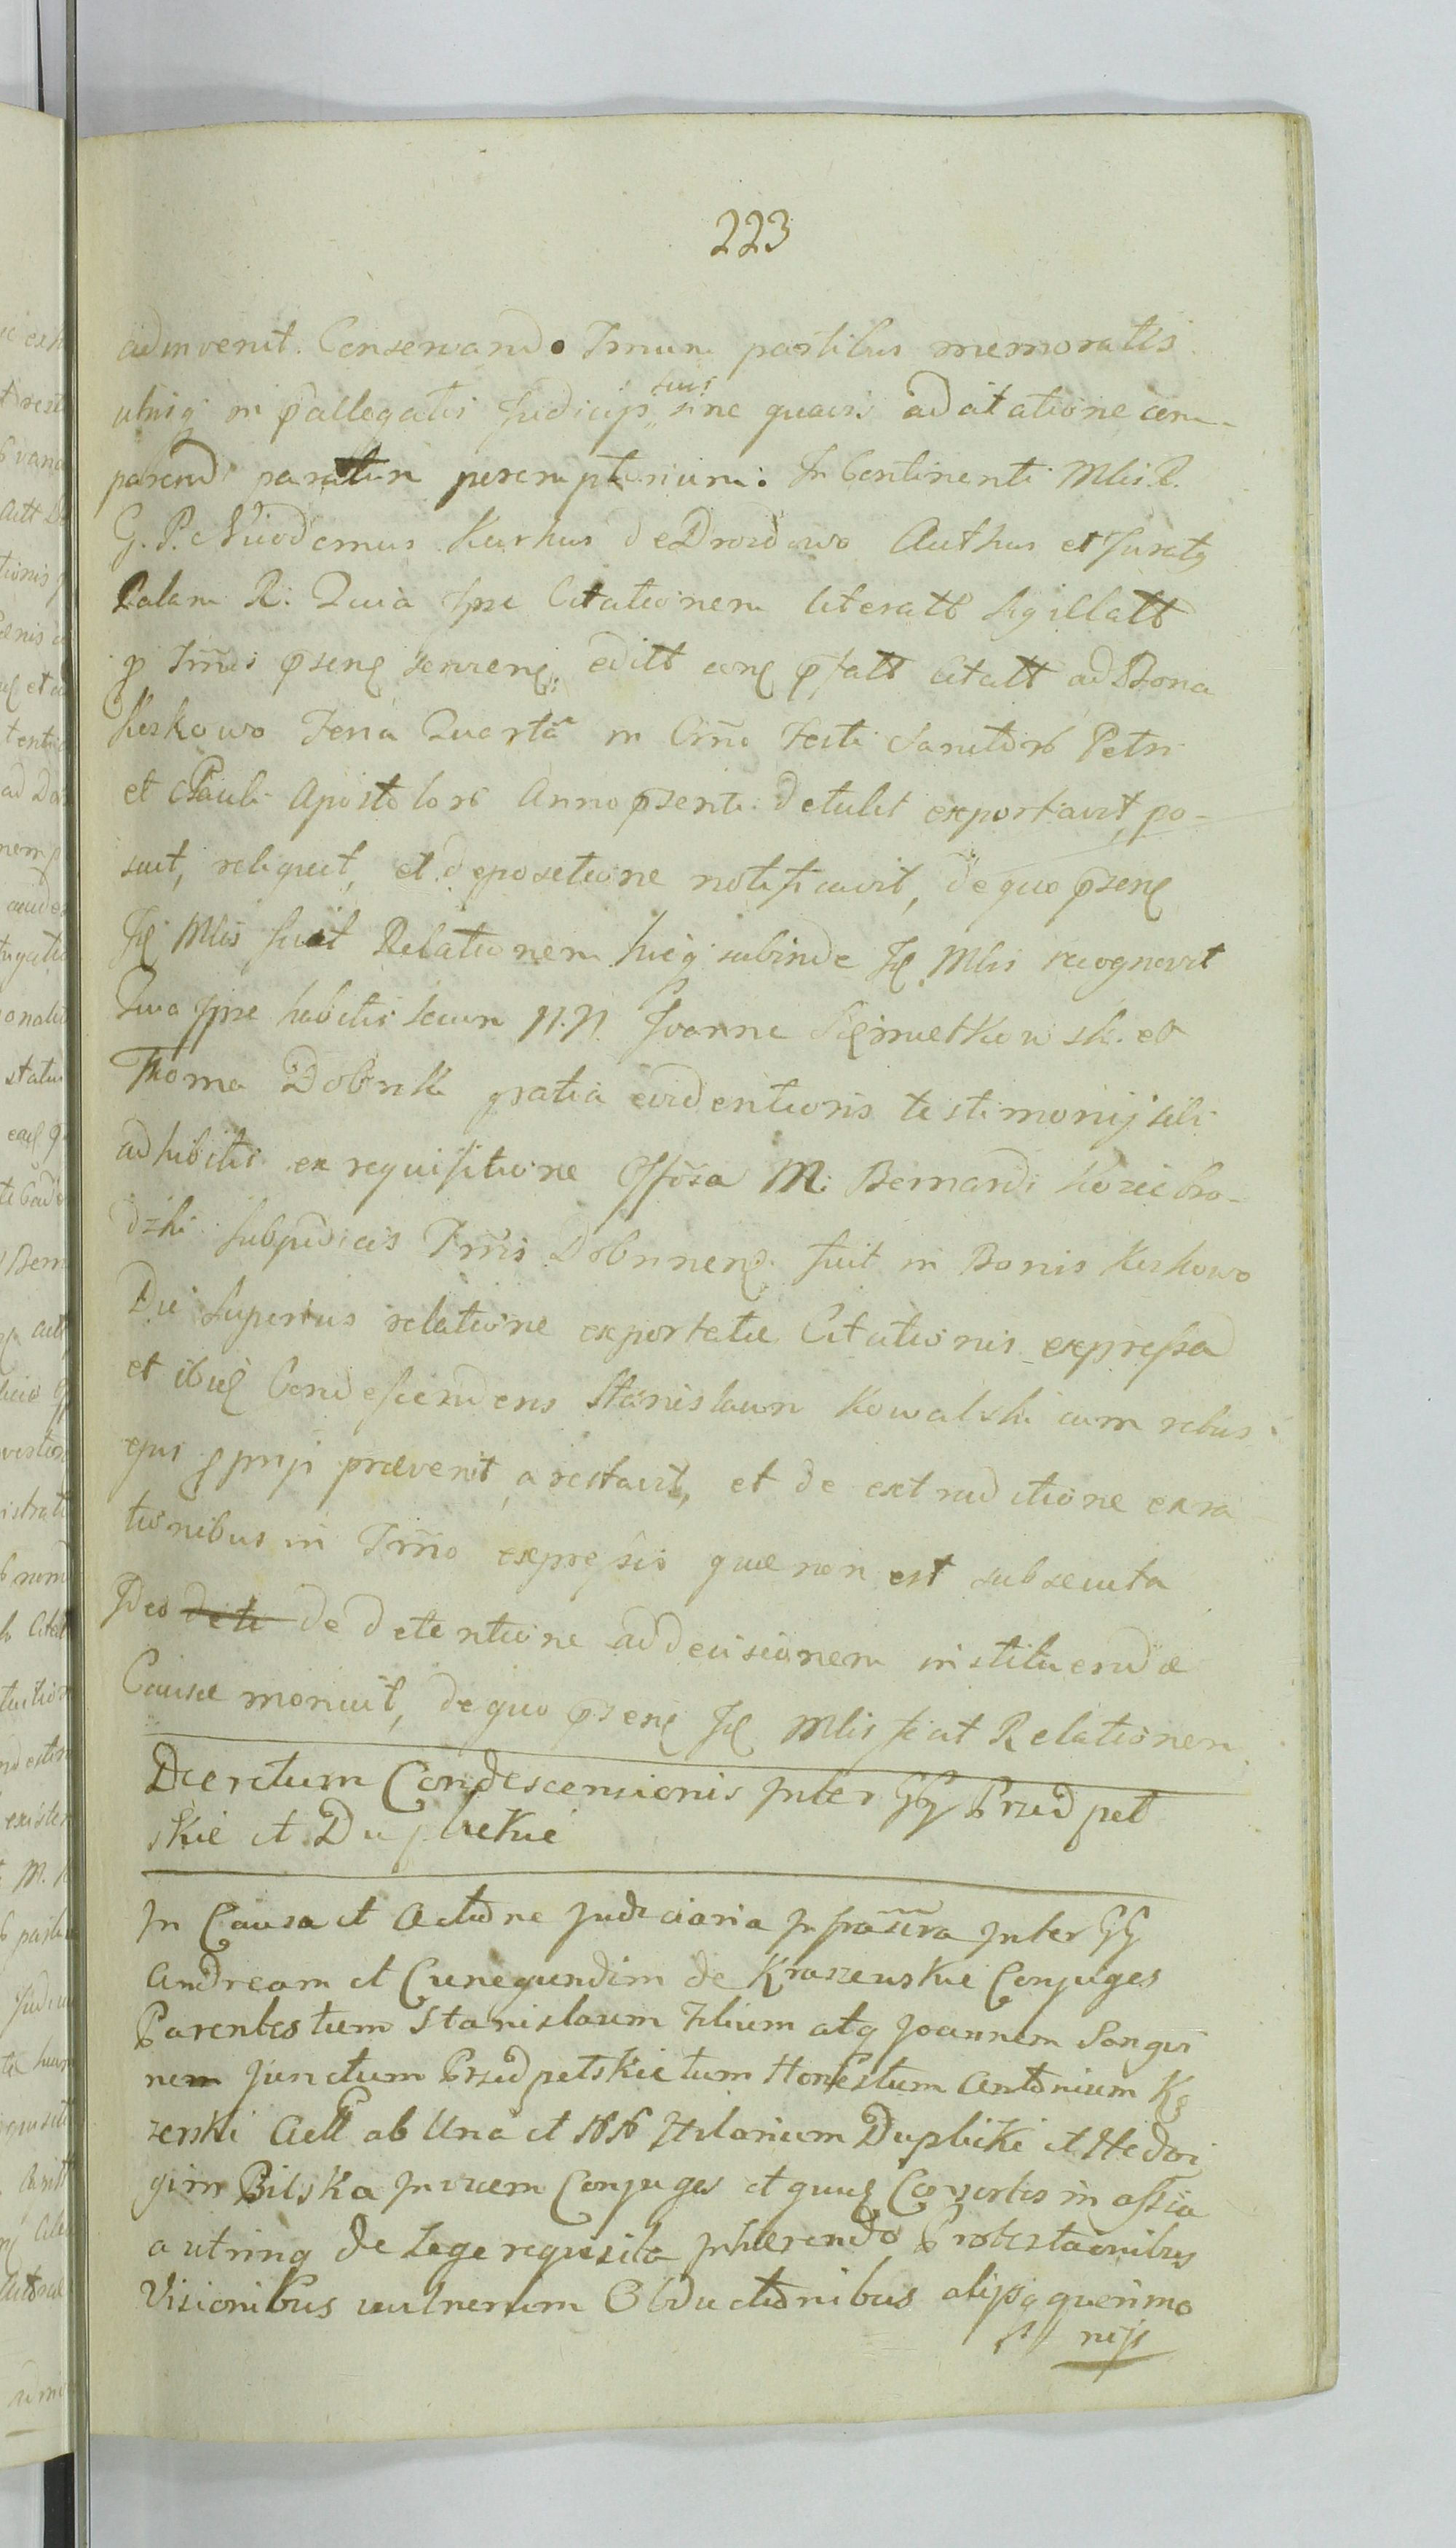 223
adinvenit. Conservando Tmum partibus memoratis
utrisq in pallegatis Judicijs suis sine quavis adcitatione com-
parendi paratum peremptorium: In Continenti Mlis R.
G. P. Nicodemus Kurkus de Drozdowo Authus et Juratq
Palam R: Quia Ipse Citationem literatt sigillatt
p Tmi psenq editt conq pfatt Citatt ad Bona
Kuskowo Feria Quarta in Crno Festi Sanctor Petri
et Pauli Apostolor Anno psenti detulit exportavit, po-
suit, reliquit, et depositione notificavit, de quo psenq
Jq Mlis fecit Relationem hicq subinde Jq Mlis recognovit
Quia Ipse habitis secum N.N. Joanne et
Thoma Dobrski gratia evidentioris testimonij sibi
adhibitis ex requisitione Gffosa M: Bernardi Koziebro-
dzki Subjudicis Tmis Dobrinenq. fuit in Bonis Kuskowo
Die superius relatione exportatæ Citationis expressa
et ibiq Condescendens Stanislaum Kowalski cum rebus
ejus pprijs prævenit, arestavit, et de extraditione ex ra-
tionibus in Tmo expressis quæ non est subsecuta
Ideo de detentione ad decisionem instituendæ
Causæ monuit, de quo psenq Jq Mlis fecit Relationem
Decretum Condescensionis Inter GG Przedpet
skie et Duplickie
In Causa et Actione Judiciaria Infrascra Inter GG
Andream et Cunegundim de Kraszewskie Conjuges
Parentes tum Stanislaum Filium atq Joannem Sangvi
nem Junctum Przedpetskie tum Honestum Antonium
zerski Actt ab Una et NN Hilarium Duplicki et Hedvi
gim Bilska Invicem Conjuges et quuq Consortes in assia
a utrinq de Lege requisita Inhærendo Protestaonibus
Visionibus vulnerum Obductionibus alijsq querimo
nijs